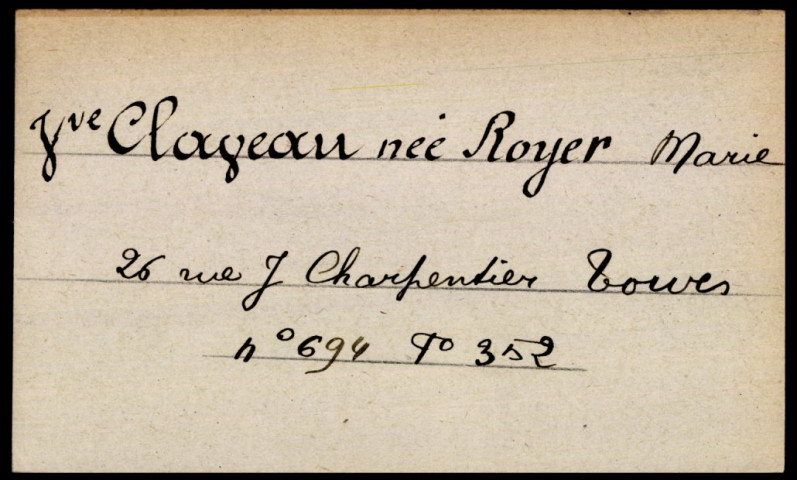 Vve Clageau née Royer Marie
26 rue J Charpentier Tours
n° 694 F° 352